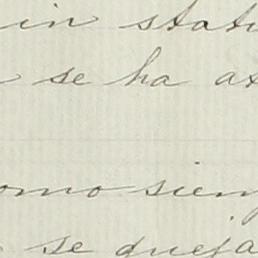 in statu
se ha at
omo siem
se queja